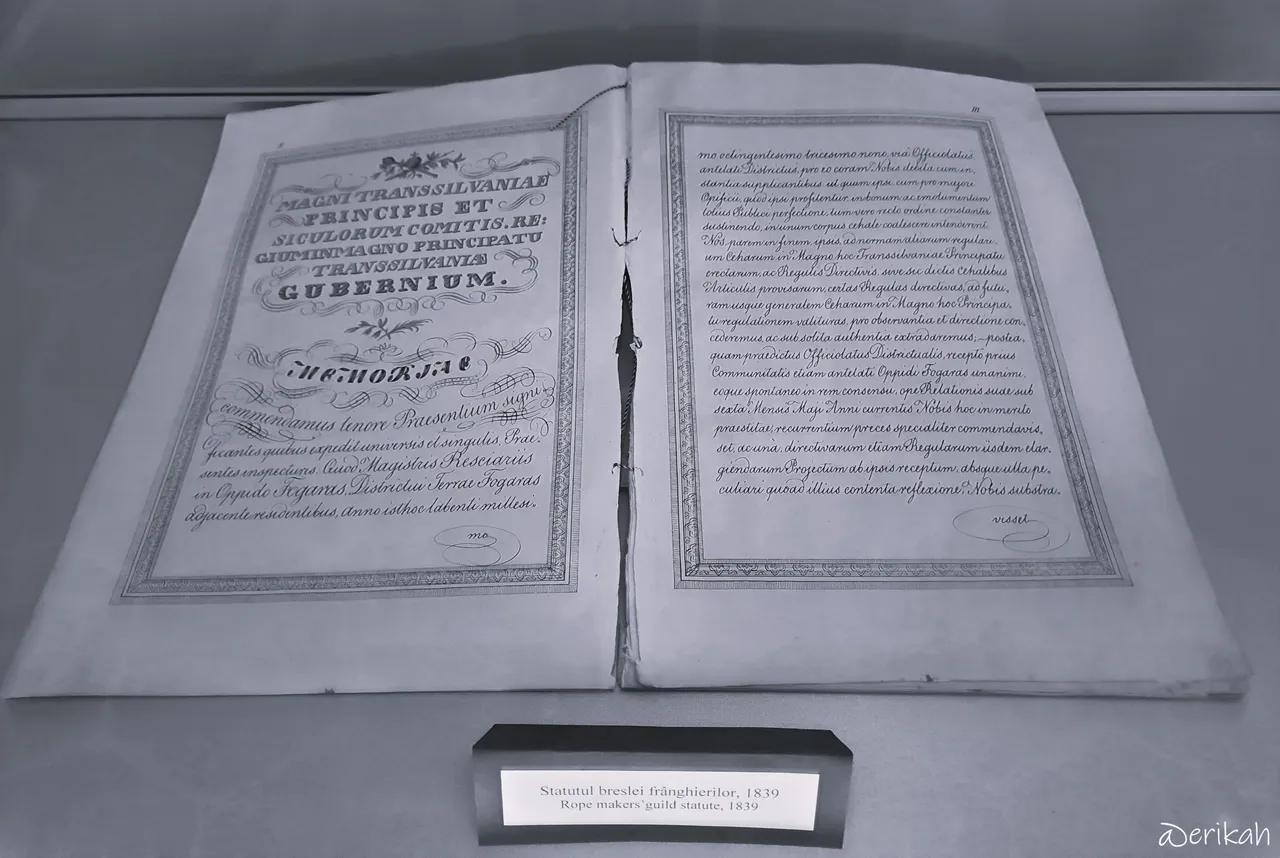 MAGNI TRANSSILVANIAE
PRINCIPIS ET
SICULORUM COMITIS. RE:
GIUM IN MAGNO PRINCIPATU
TRANSSILVANIÆ
GUBERNIUM.
MEMORIAE
commendamus tenore Praesentium signi-
ficantes quibus expedit universis et singulis, Prae-
sentes inspecturis. Quod Magistris Resciariis
in Oppido Fogaras, Districtui Terrae Fogaras
adjacente residentibus, Anno isthoc labenti millesi-
mo
III
mo octingentesimo tricesimo nono, via Officiolatus
antelati Districtus, pro eo coram Nobis debita cum in-
stantia supplicantibus, ut quum ipsi, cum pro majore
Opificii, quod ipsi profitentur, in bonum ac emolumentum
totius Publici perfectione, tum vero recto ordine constanter
sustinendo, in unum corpus cehale coalescere intenderent,
Nos, parem in finem, ipsis, ad normam aliarum regulari-
um Ceharum in Magno hoc Transsilvaniae Principatu
erectarum, ac Regulis Directivis, sive sic dictis Cehalibus
Articulis provisarum, certas Regulas directivas, ad futu-
ram usque generalem Ceharum in Magno hoc Principa-
tu regulationem valituras, pro observantia et directione con-
cederemus, ac sub solita authentia extradaremus;– postea,
quam praedictus Officiolatus Districtualis, recepto prius
Communitatis etiam antelati Oppidi Fogaras unanimi
eoque spontaneo in rem consensu, ope Relationis suae sub
sexta Mensis Maji Anni currentis Nobis hoc in merito
praestitae, recurrentium preces specialiter commendavis,
set, ac unà, directivarum etiam Regularum iisdem elar-
giendarum Projectum ab ipsis receptum, absque ulla pe-
culiari quoad illius contenta reflexione, Nobis substra-
visset
Statutul breslei frânghierilor, 1839
Rope makers'guild statute, 1839
@erikah